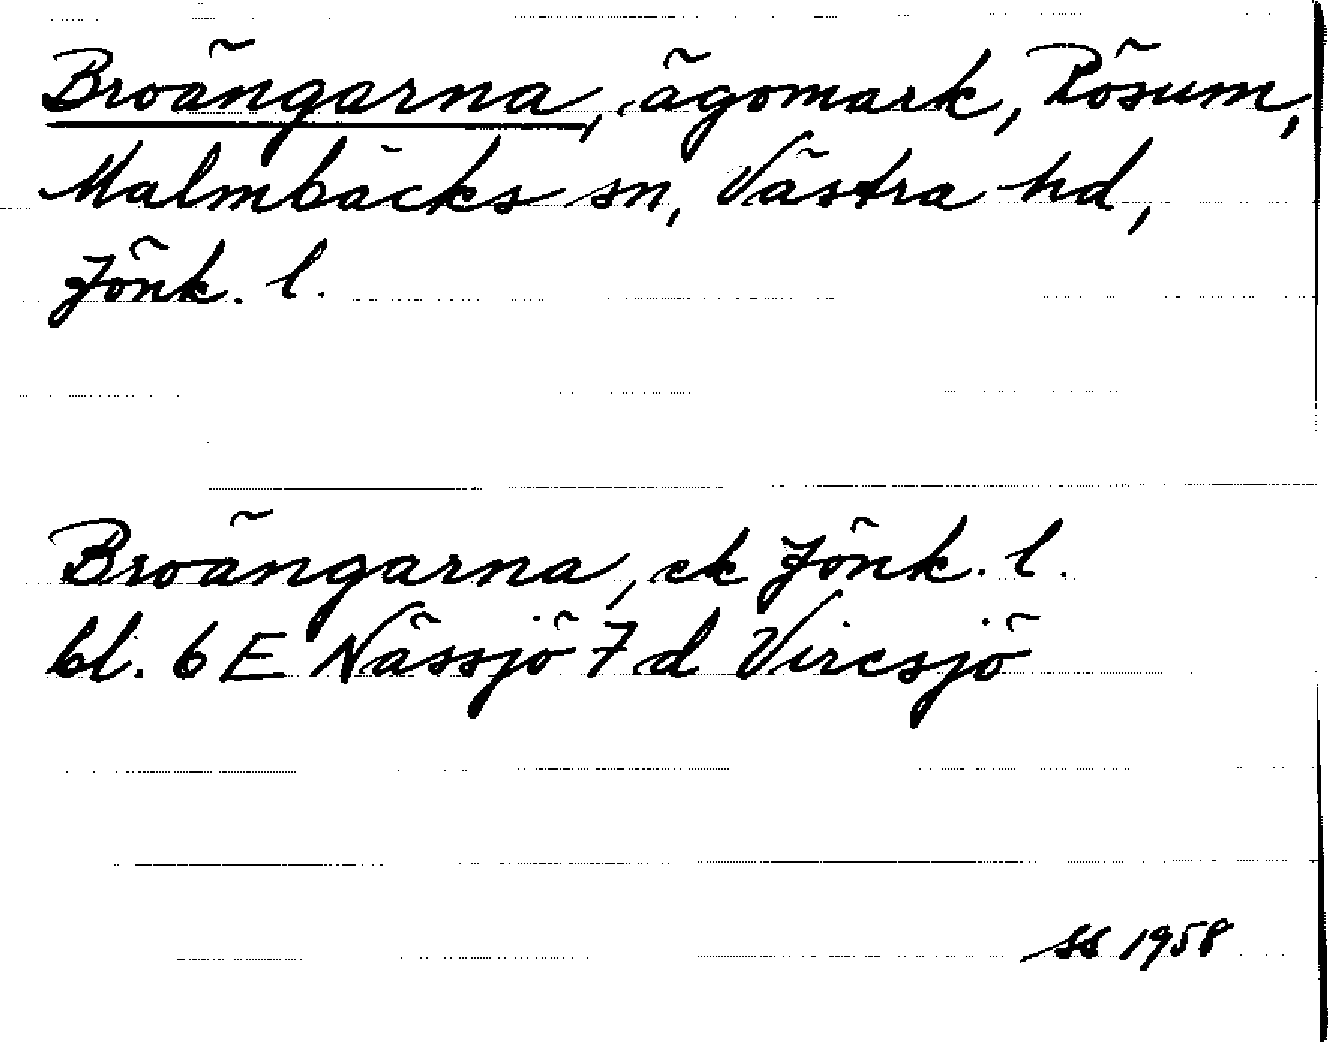 Broängarna, ägomark, Rösum,
Malmbäcks sn, Västra hd,
Jönk. l.
Broängarna, ek Jönk. l.
bl. 6 E Nässjö 7 d Vircsjö
SS 1958